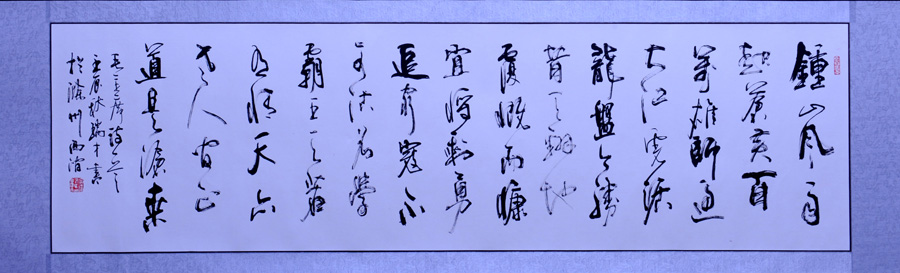 鍾山風雨
起蒼黄百
萬雄師過
大江虎踞
龍盤今勝
昔天翻地
覆慨而慷
宜將剩勇
追窮寇不
可沽名學
霸王天若
有情天亦
老人間正
道是滄桑
毛主席詩
秋端才書
於滁州西澗